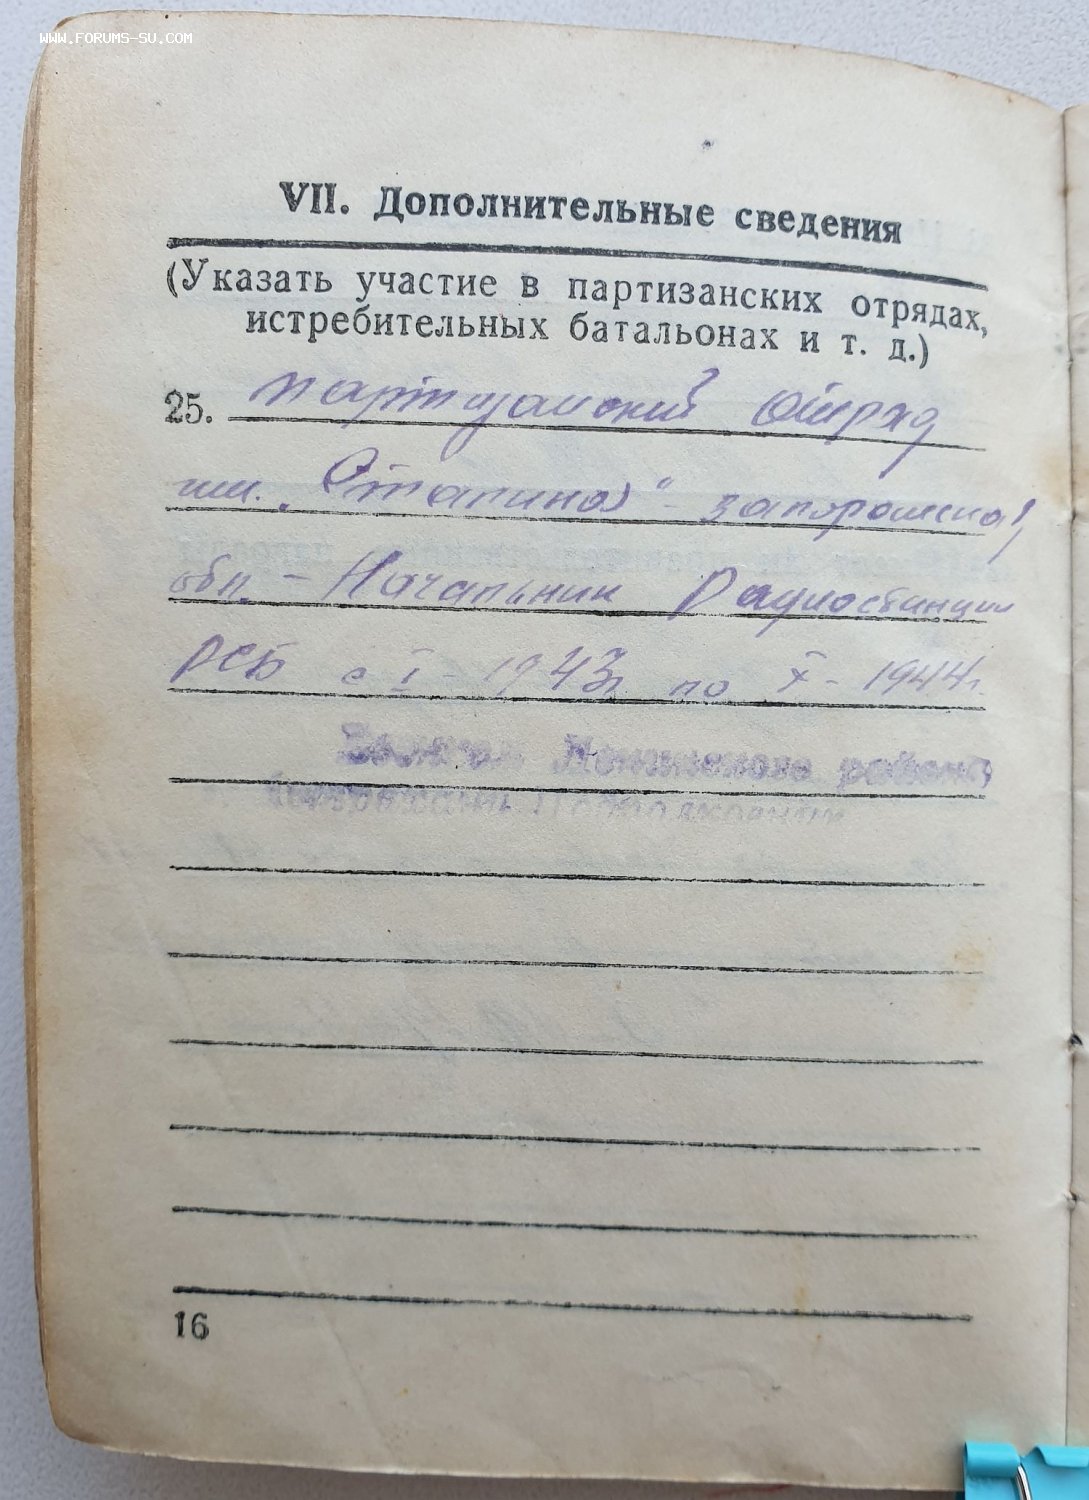 WWW.FORUMS-SU.COM
VII. Дополнительные сведения
(Указать участие в партизанских отрядах,
истребительных батальонах и т. д.)
25. Партизанский Отряд
им. „Сталина" - запорожска
обл. - Начальник Радиостанции
РСБ с I - 1943г по X - 1944г.
района
16